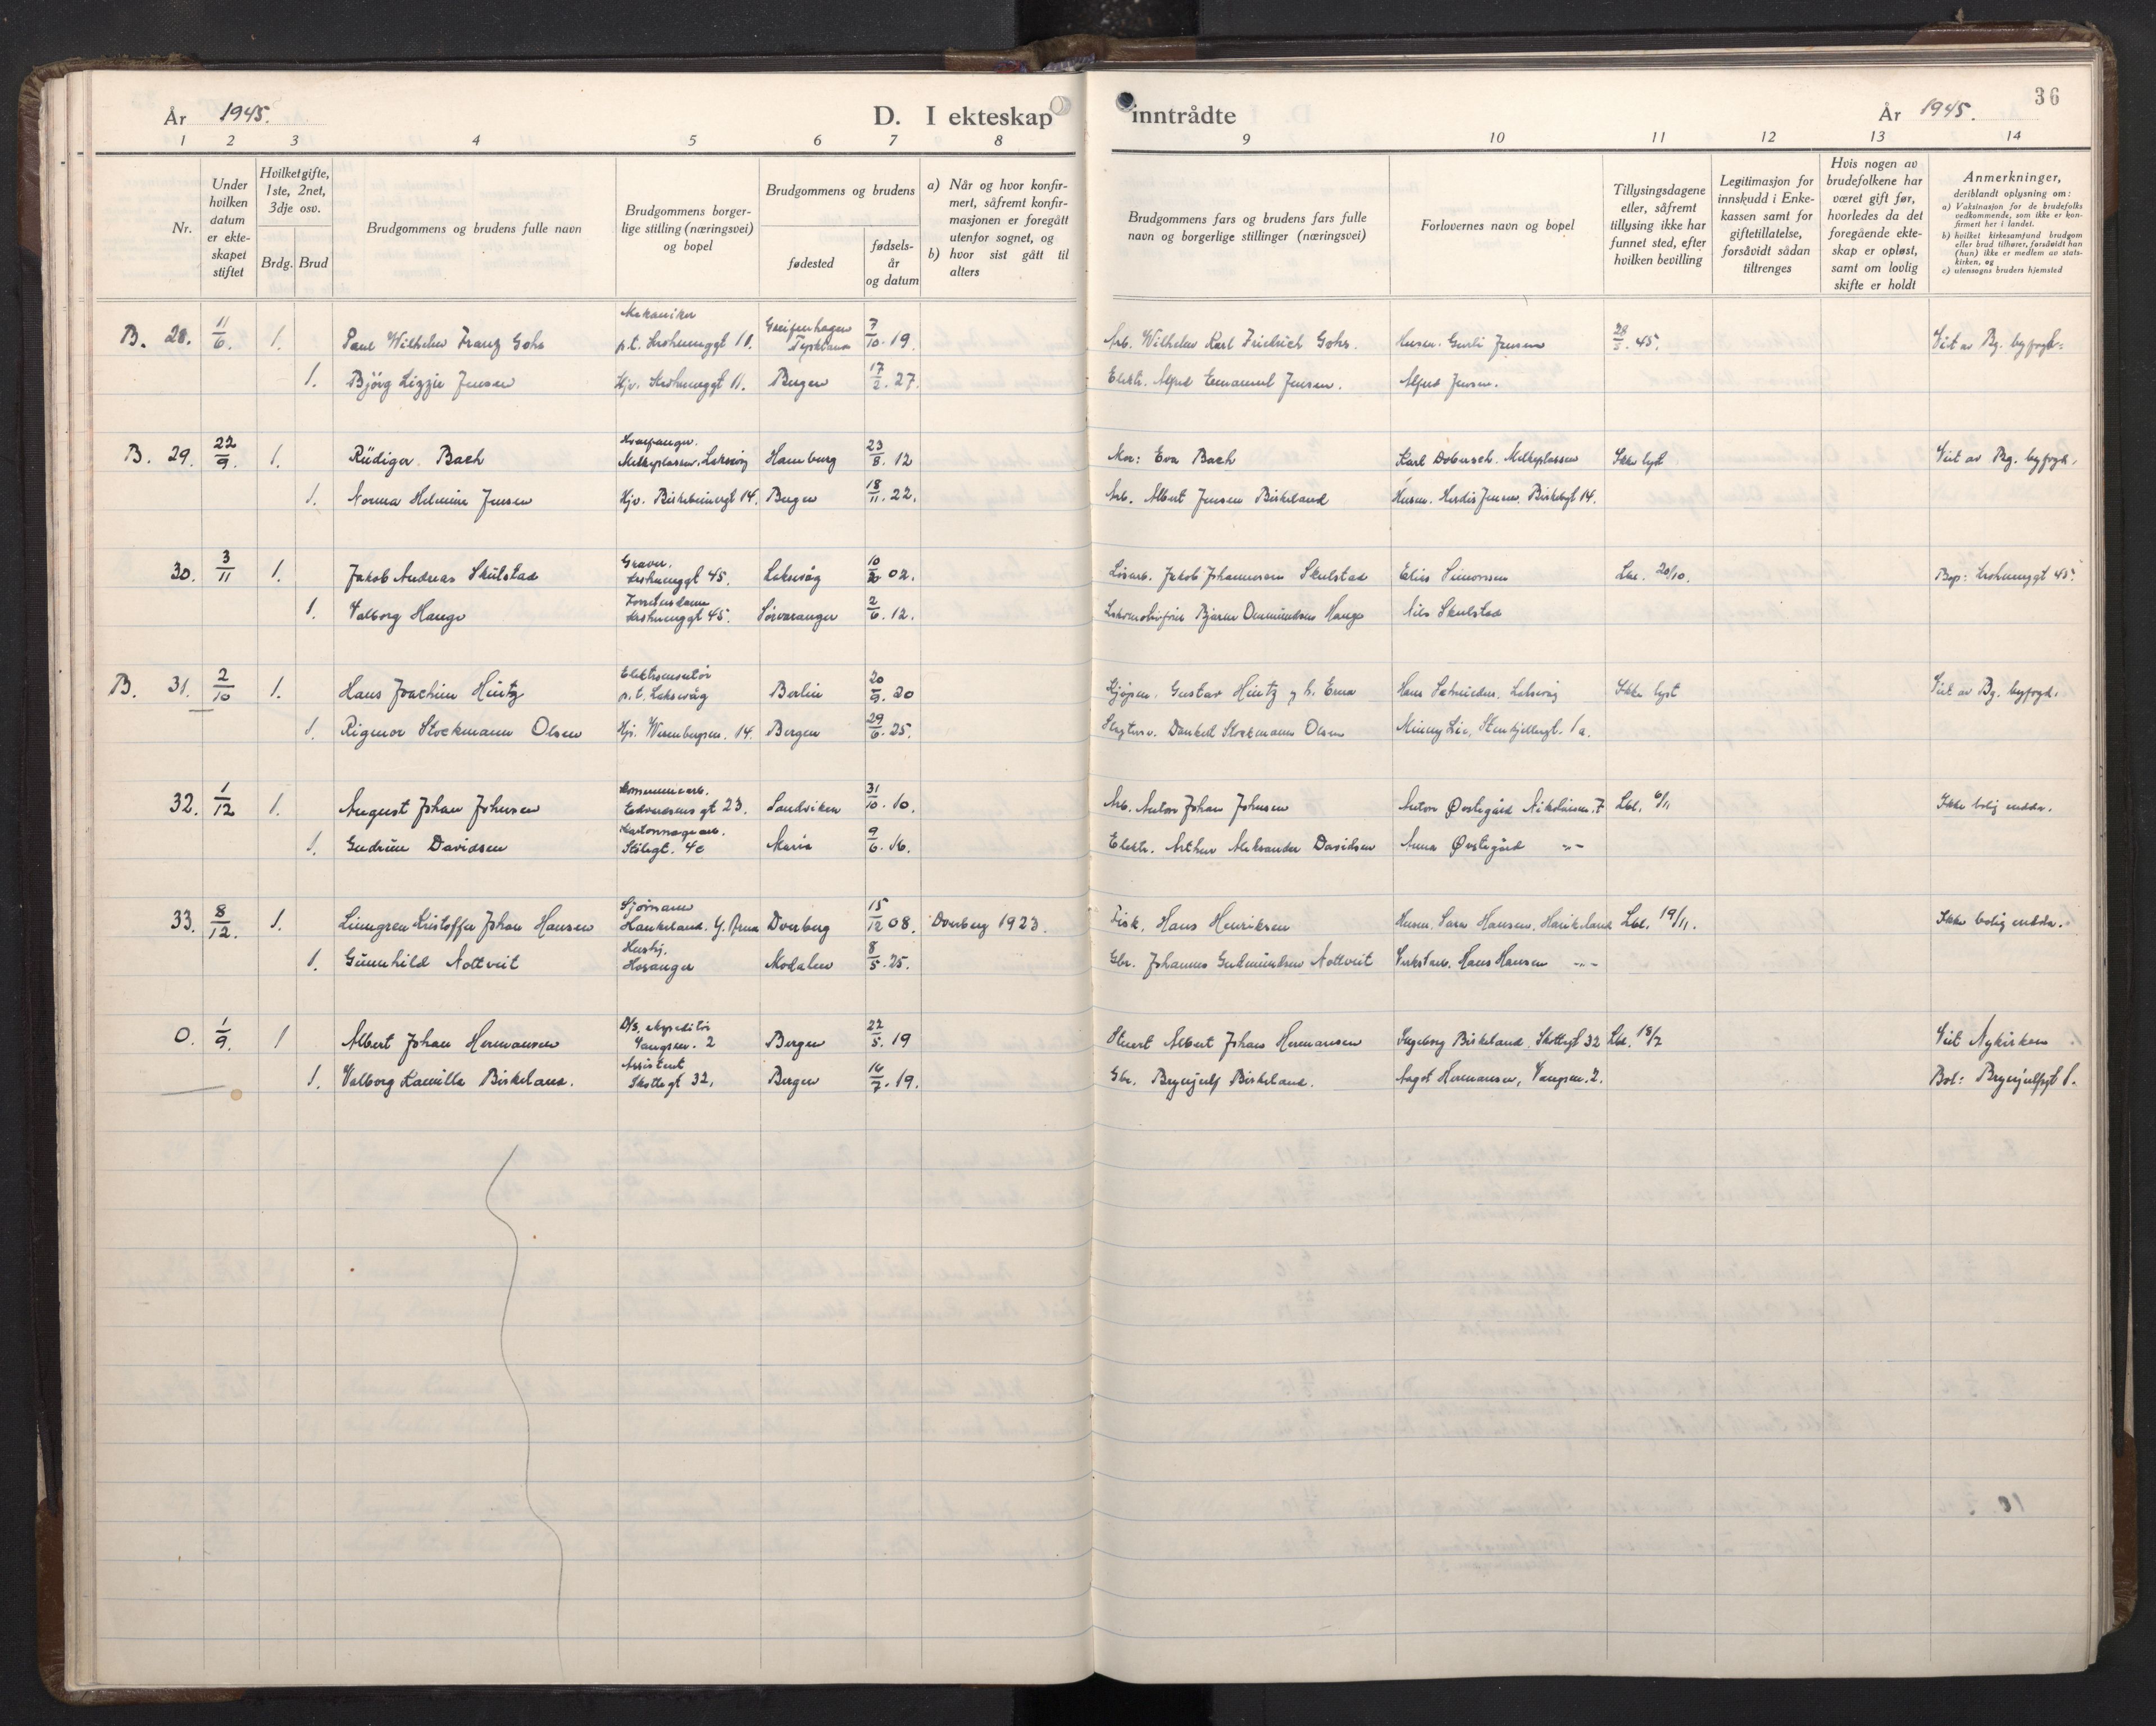 36
År 1945. D. I ekteskap inntrådte År 1945.
1 2 3 4 5 6 7 8 9 10 11 12 13 14
Nr.
Under hvilken datum er ekte-skapet stiftet
Hvilket gifte, 1ste, 2net, 3dje osv.
Brdg. Brud
Brudgommens og brudens fulle navn
Brudgommens borger-lige stilling (næringsvei) og bopel
Brudgommens og brudens
fødested
fødsels-år og datum
a) Når og hvor konfir-mert, såfremt konfir-masjonen er foregått utenfor sognet, og
b) hvor sist gått til alters
Brudgommens fars og brudens fars fulle navn og borgerlige stillinger (næringsvei)
Forlovernes navn og bopel
Tillysingsdagene eller, såfremt tillysing ikke har funnet sted, efter hvilken bevilling
Legitimasjon for innskudd i Enke-kassen samt for giftetillatelse, forsåvidt sådan tiltrenges
Hvis nogen av brudefolkene har været gift før, hvorledes da det foregående ekte-skap er opløst, samt om lovlig skifte er holdt
Anmerkninger,
deriblandt oplysning om:
a) Vaksinasjon for de brudefolks vedkommende, som ikke er kon-firmert her i landet.
b) hvilket kirkesamfund brudgom eller brud tilhører, forsåvidt han (hun) ikke er medlem av stats-kirken, og
c) utensogns bruders hjemsted
Mekaniker
B. 28. 11/6. 1. Paul Wilhelm Franz Gohs p.t. 11. Greifenhagen Tyskland 7/10. 19. Arb. Wilhelm Karl Friedrich Gohs. Husm. Gurli Jensen 45. Viet av Bg. byfogd.
1. Bjørg Lizzie Jensen Hjv. 11. Bergen 17/2. 27. Elektr. Alfred Emanuel Jensen. Alfred Jensen.
B. 29. 22/9. 1. Rüdiger Bach Melkeplassen, Laksevåg Hamburg 23/8. 12 Mor: Eva Bach Karl Dobersch. Melkeplassen Ikke lyst Viet av Bg. byfogd.
1. Norma Helmine Jensen Hjv. Birkebeinergt 14. Bergen 18/11. 22. Arb. Albert Jensen Birkeland Husm. Herdis Jensen, Birkebgt 14.
Graver.
30. 3/11 1. Jakob Andreas Skulstad 45. Laksevåg 02. Løsarb. Jakob Johannessen Skulstad Elias Simonsen Lbl. 20/10. Bop: 45.
1. Valborg Hauge 45. Sørvaranger 2/6. 12. Bjarne Hauge Nils Skulstad
Elektromontør
B. 31. 2/10 1. Hans Joachim Hintz p.t. Laksevåg Berlin 20/9. 20 Kjøpm. Gustav Hintz og h. Erna Hans Laksevåg Ikke lyst Viet av Bg. byfogd.
1. Rigmor Stockmann Olsen Hjv. 14. Bergen 29/6. 25. Dankert Stockmann Olsen Minny Lie, Stenkjellergt. 1a.
Kommunearb.
32. 1/12 1. August Johan Johnsen Edvardsens gt 23. Sandviken 31/10. 10. Arb. Anton Johan Johnsen Anton Øvstegård 7 Lbl. 6/11 Ikke bolig endda.
Kartonnagearb.
1. Gudrun Davidsen Stølegt. 4c Maria 9/6. 16. Elektr. Arthur Aleksander Davidsen Anna Øvstegård -"-
Sjømann
33. 8/12. 1. Limgren Kristoffer Johan Hansen Haukeland. Y. Arna Dverberg 15/12 08. Dverberg 1923. Fisk. Hans Henriksen Husm. Sara Hansen, Haukeland Lbl. 19/11. Ikke bolig endda.
Hushj.
1. Gunnhild Nottveit Hosanger Modalen 8/5. 25. Gbr. Johannes Gudmundsen Nottveit Verkstarb. Hans Hansen -"-
D/S. ekspeditør
0. 1/9. 1 Albert Johan Hermansen 2 Bergen 22/5. 19 Stuert Albert Johan Hermansen Ingeborg Birkeland, Skottegt 32 Lbl. 18/7 Viet Nykirken
Assistent
1. Valborg Kamilla Birkeland. Skottegt 32, Bergen 16/7. 19. Gbr. Brynjulf Birkeland. Aagot Hermansen, 2. Bol: Brynjulfsgt 1.